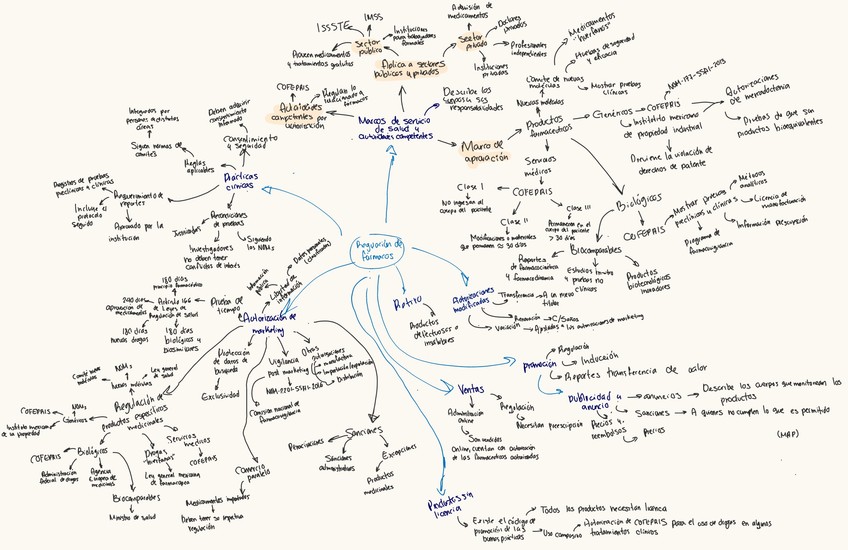 Regulación de
fármacos
Marcos de servicio
de salud y
autoridades competentes
Aplica a sectores
públicos y privados
Sector
público
ISSSTE
IMSS
Instituciones
para trabajadores
formales
Proveen medicamentos
y tratamientos gratuitos
Sector
privado
Admisión de
medicamentos
Doctores
privados
Profesionales
independientes
Instituciones
privadas
COFEPRIS
Autoridades
competentes por
autorización
Describe los
responsabilidades
Marco de
aprobación
Productos
farmacéuticos
Nuevas moléculas
Comité de nuevas
moléculas
Medicamentos
"huérfanos"
Pruebas de seguridad
y eficacia
Mostrar pruebas
clínicas
Genéricos
COFEPRIS
NOM-177-SSA1-2013
Autorizaciones
de mercadotecnia
Pruebas de que son
productos bioequivalentes
Instituto mexicano
de propiedad industrial
Previene la violación de
derechos de patente
Servicios
médicos
COFEPRIS
Clase I
No ingresan al
cuerpo del paciente
Clase II
Modificaciones o materiales
que permanecen ≤ 30 días
Clase III
Permanecen en el
cuerpo del paciente
> 30 días
Biológicos
COFEPRIS
Mostrar pruebas
preclínicas y clínicas
Métodos
analíticos
Licencia de
manufacturación
Información prescripción
Programa de
farmacovigilancia
Biocomparables
Reportes
de farmacocinética
y farmacodinamia
Estudios
no
clínicos
Productos
biotecnológicos
innovadores
Prácticas
clínicas
Consentimiento
y seguridad
Deben adquirir
consentimiento
informado
Reglas
aplicables
Integrados por
personas a distintas
áreas
Siguen normas de
comités
Requerimiento de
reportes
Registros de pruebas
preclínicas y clínicas
Incluye el
protocolo
seguido
Aprobado por la
institución
de pruebas
Siguiendo
las NOMs
Investigadores
no deben tener
conflictos de interés
Autorización de
marketing
Prueba de
tiempo
Artículo 166
de Leyes de
Regulación de salud
180 días
principio farmacéutico
240 días
aprobación de
medicamentos
180 días
nuevas drogas
180 días
biológicos y
biosimilares
Información
pública
Libertad de
información
Datos personales
(clasificados)
Protección
de datos de
búsqueda
Exclusividad
Vigilancia
Post marketing
NOM-220-SSA1-2016
Comisión nacional de
farmacovigilancia
Otras
autorizaciones
manufactura
Importación/exportación
Distribución
Sanciones
Renovaciones
Sanciones
administrativas
Excepciones
Productos
medicinales
Comercio
paralelo
Medicamentos importados
Deben tener su respectiva
regulación
Regulación de
productos específicos
medicinales
Nuevas moléculas
NOMs
Comité nuevas
moléculas
Ley general
de salud
Genéricos
NOMs
COFEPRIS
Instituto mexicano
de la propiedad
Biológicos
COFEPRIS
Administración
federal de drogas
Agencia
Europea de
medicinas
Biocomparables
Ministro de salud
Drogas
"huérfanas"
Ley general mexicana
de farmacopea
Servicios
médicos
COFEPRIS
Retiro
Productos
defectuosos o
inalterables
Autorizaciones
modificadas
Transferencia
A un nuevo
titular
Renovación
C/5 años
Variación
Ajustados a las autorizaciones de marketing
Promoción
Regulación
Inducción
Aportes transferencia de valor
Publicidad y
anuncio
anuncios
Describe los cuerpos que monitorean los
productos
Sanciones
A quienes no cumplen lo que es permitido
Precios y
reembolsos
Precios
(MAP)
Ventas
Administración
online
Son vendidos
Online, cuentan con autorización
de las farmacéuticas autorizadas
Regulación
Necesitan prescripción
Productos sin
licencia
Todos los productos necesitan licencia
Existe el código de
promoción de las
buenas prácticas
Uso compasivo
Autorización de COFEPRIS para el uso de drogas en algunos
tratamientos clínicos